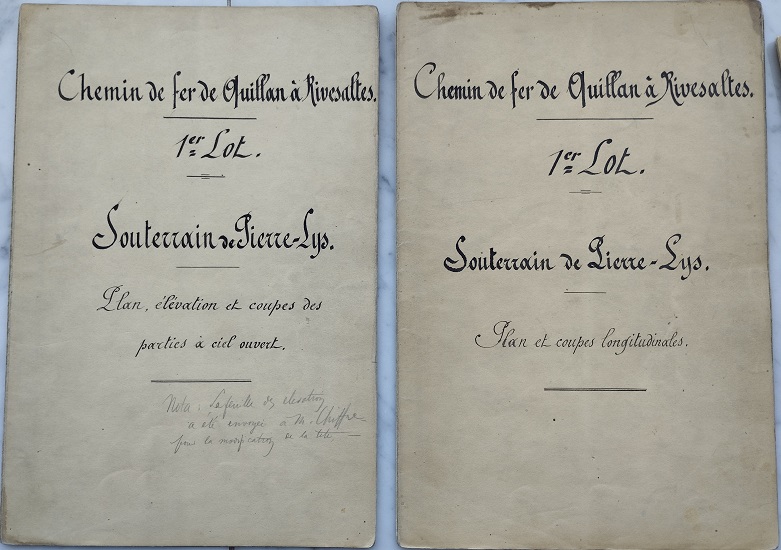 Chemin de fer de Quillan à Rivesaltes.
1er Lot.
Souterrain de Pierre-Lys.
Plan, élévation et coupes des
parties à ciel ouvert.
Nota : La feuille des élévations
a été envoyée à M. Chiffre
pour la modification de la tête
Chemin de fer de Quillan à Rivesaltes.
1er Lot.
Souterrain de Pierre-Lys.
Plan et coupes longitudinales.